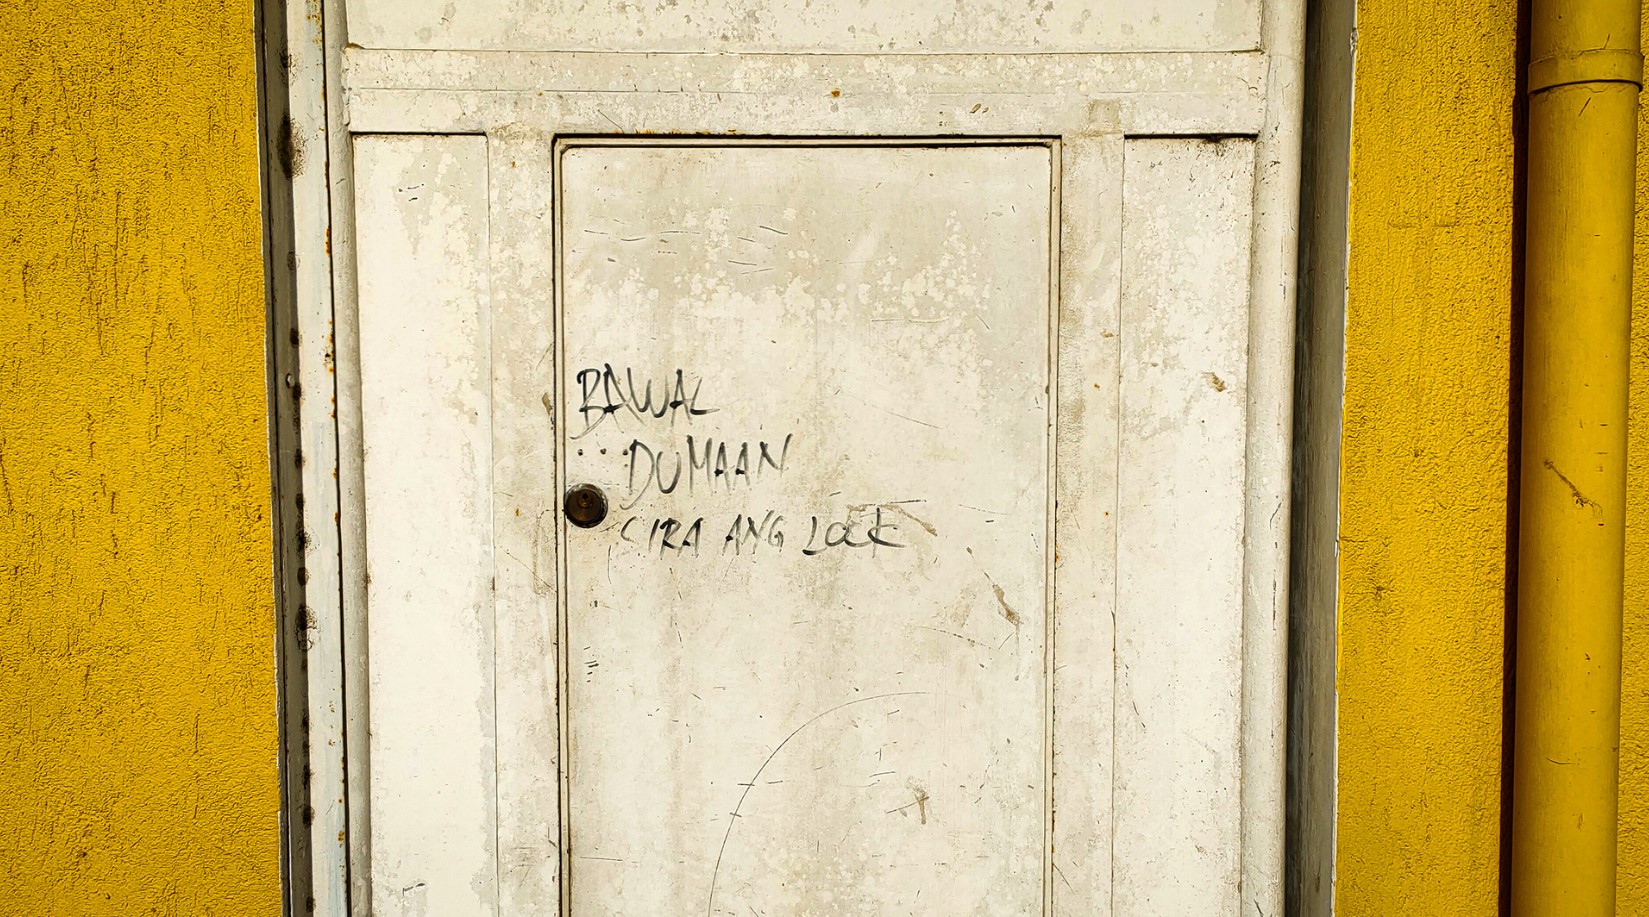 BAWAL
DUMAAN
SIRA ANG LOCK